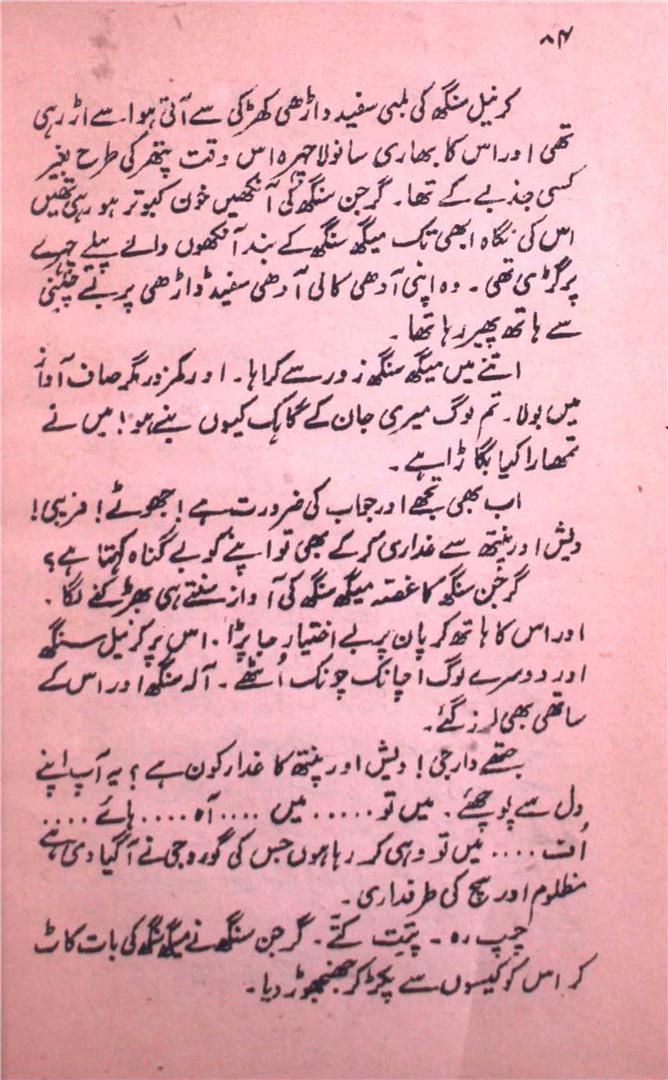 ۸۴
کرنیل سنگھ کی لمبی سفید داڑھی کھڑکی سے آتی ہوا سے اڑ رہی
تھی اور اس کا بھاری سانولا چہرہ اس وقت پتھر کی طرح بغیر
کسی جذبے کے تھا۔ گرجن سنگھ کی آنکھیں خون کبوتر ہو رہی تھیں
اس کی نگاہ ابھی تک میگھ سنگھ کے بند آنکھوں والے پیلے چہرے
پر گڑی تھی۔ وہ اپنی آدھی کالی آدھی سفید داڑھی پر بے چینی
سے ہاتھ پھیر رہا تھا۔
اتنے میں میگھ سنگھ زور سے کراہا۔ اور کمزور مگر صاف آواز
میں بولا۔ تم لوگ میری جان کے گاہک کیوں بنے ہو! میں نے
تمھارا کیا بگاڑا ہے۔
اب بھی تجھے اور جواب کی ضرورت ہے! جھوٹے! فریبی!
دیش اور پنتھ سے غداری کر کے بھی تو اپنے کو بے گناہ کہتا ہے؟
گرجن سنگھ کا غصہ میگھ سنگھ کی آواز سنتے ہی بھڑکنے لگا۔
اور اس کا ہاتھ کرپان پر بے اختیار جا پڑا۔ اس پر کرنیل سنگھ
اور دوسرے لوگ اچانک چونک اُٹھے۔ آلہ سنگھ اور اس کے
ساتھی بھی لرز گئے۔
جتھے دار جی! دیش اور پنتھ کا غدار کون ہے؟ یہ آپ اپنے
دل سے پوچھئے۔ میں تو ..... میں .... آہ .... ہائے ....
اُف .... میں تو وہی کر رہا ہوں جس کی گورو جی نے آگیا دی ہے
مظلوم اور سچ کی طرفداری۔
چپ رہ۔ پتِت کتے۔ گرجن سنگھ نے میگھ سنگھ کی بات کاٹ
کر اس کو کیسوں سے پکڑ کر جھنجھوڑ دیا۔